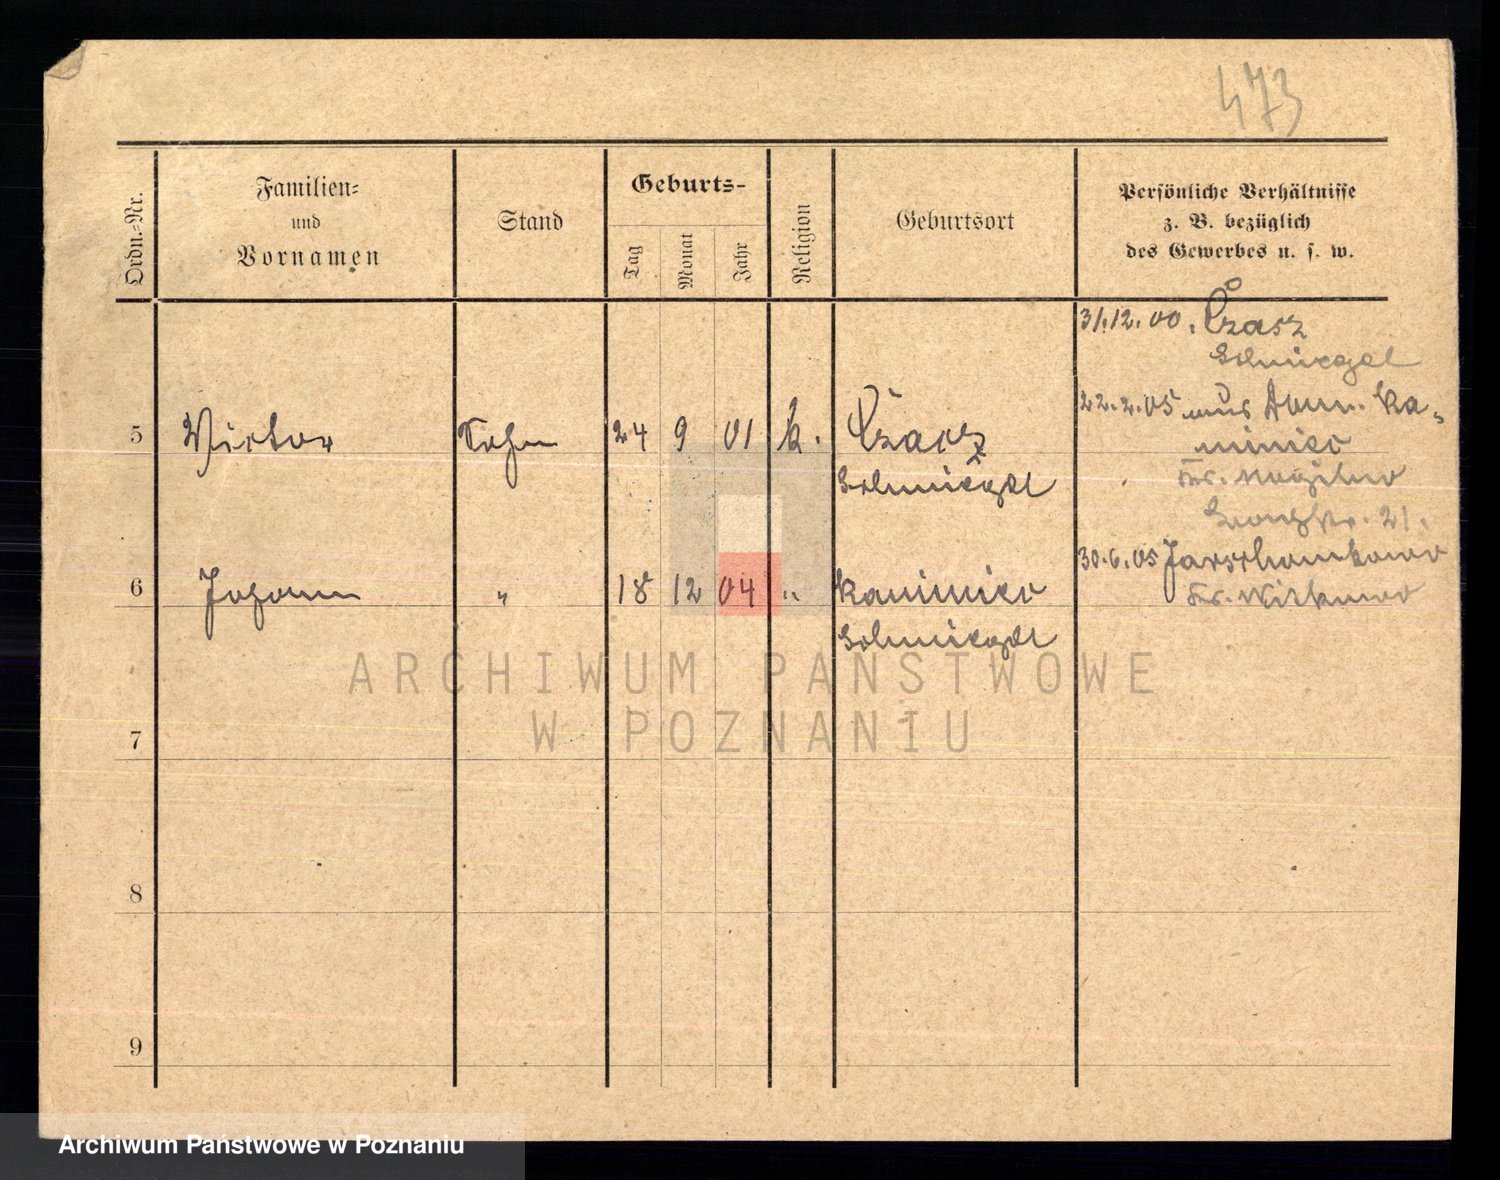 473
Ordn.-Nr.
Familien-
und
Vornamen
Stand
Geburts-
Tag
Monat
Jahr
Religion
Geburtsort
Persönliche Verhältnisse
z. B. bezüglich
des Gewerbes u. s. w.
31.12.00. Czacz
Schmiegel
22.2.05 aus Dom. Ka-
miniec
Kr. Mogilno
21.
5 Victor Sohn 24 9 01 k. Czacz
Schmiegel
30.6.05
Kr. Witkowo
6 Johann " 18 12 04 " Kaminiec
Schmiegel
7
8
9
ARCHIWUM PAŃSTWOWE
W POZNANIU
Archiwum Państwowe w Poznaniu